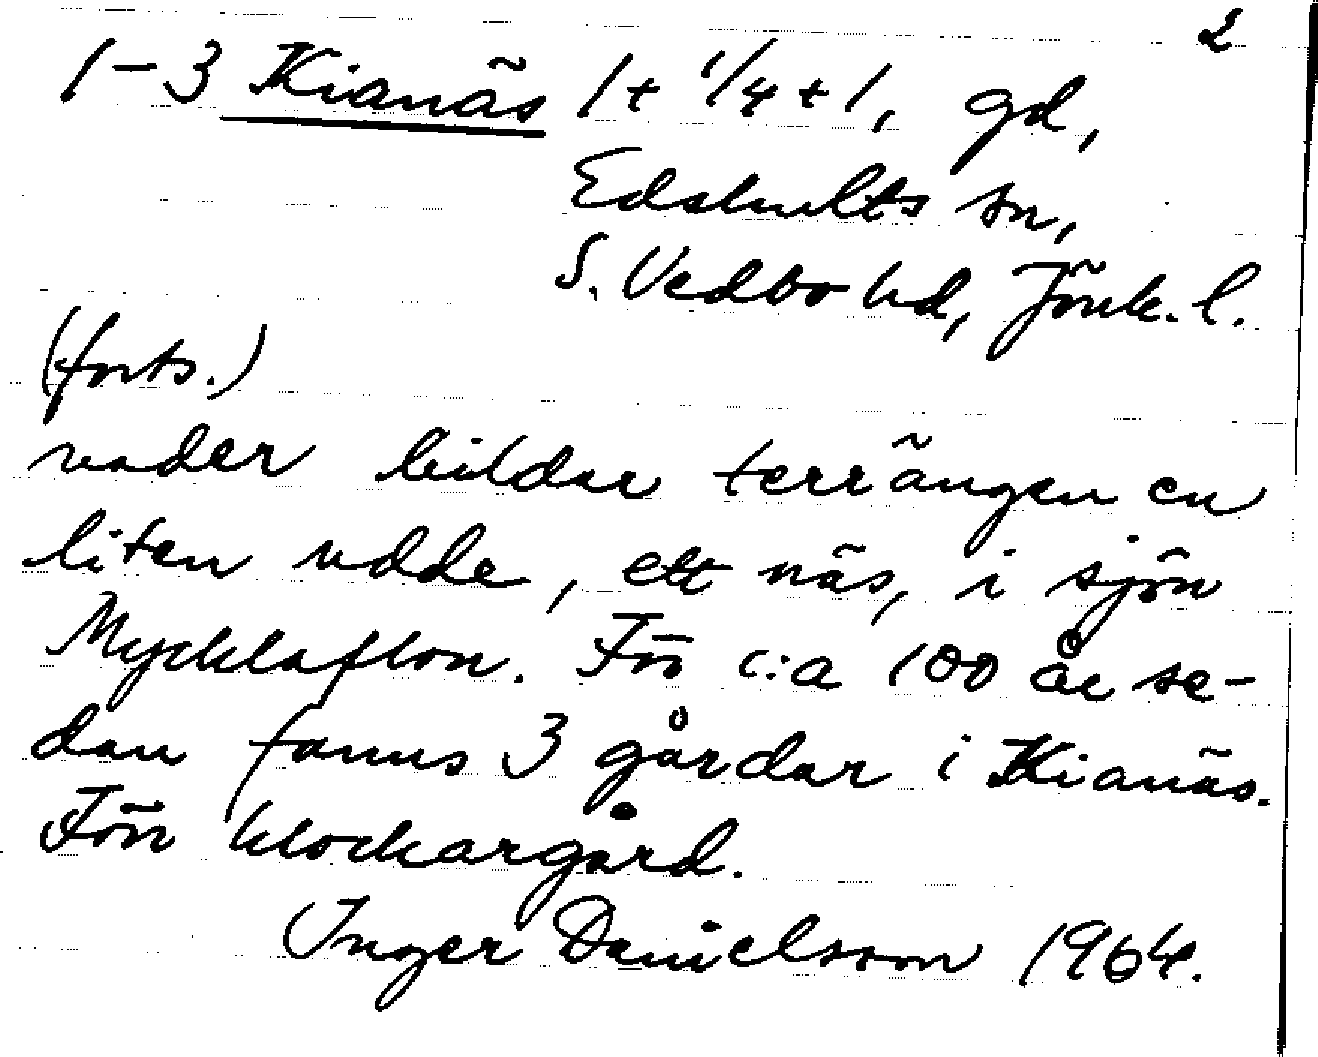 2
1-3 Kianäs 1+1/4+1, gd,
Edshults sn,
S. Vedbo hd, Jönk. l.
(forts.)
under bildar terrängen en
liten udde, ett näs, i sjön
Mycklaflon. För c:a 100 år se-
dan fanns 3 gårdar i Kianäs.
Förr klockargård.
Inger Danielsson 1964.